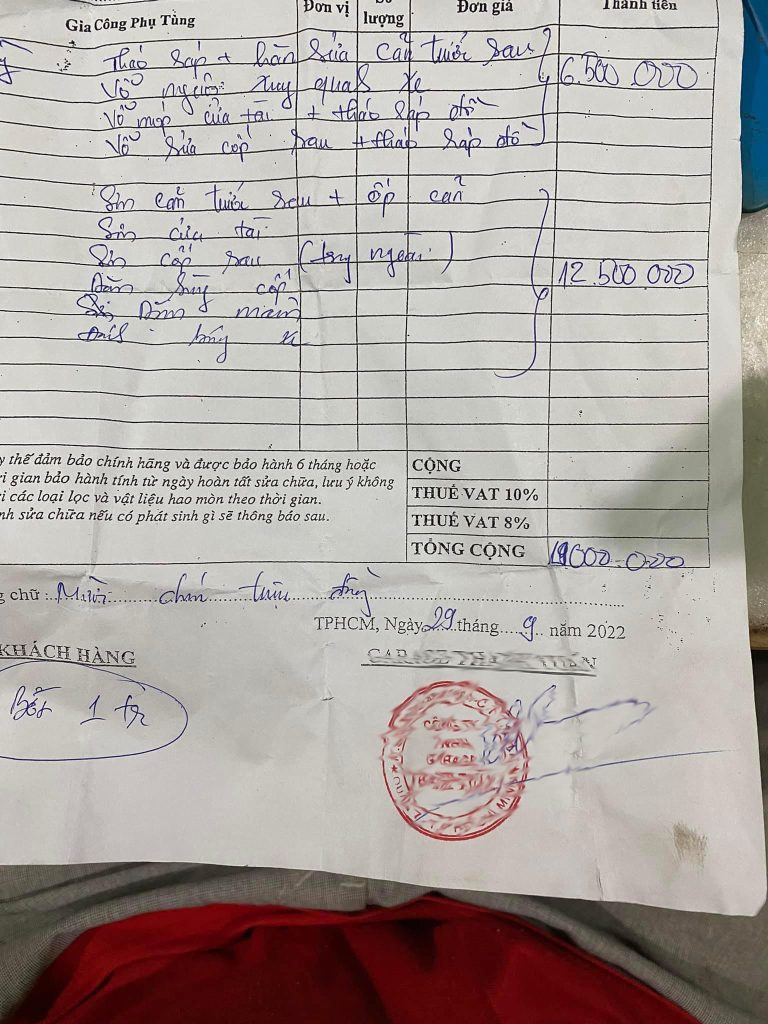 Gia Công Phụ Tùng Đơn vị lượng Đơn giá Thành tiền
Tháo ráp + hàn sửa cản trước sau 6.500.000
Vỗ xung quanh xe
Vỗ móp cửa tài + tháo ráp đồ
Vỗ sửa cốp sau + tháo ráp đồ
Sơn cản trước sau + ốp cản
Sơn cửa tài
Sơn cốp sau (trong ngoài) 12.500.000
Dàn cốp
Sơn mâm
bóng xe
y thế đảm bảo chính hãng và được bảo hành 6 tháng hoặc
i gian bảo hành tính từ ngày hoàn tất sửa chữa, lưu ý không
i các loại lọc và vật liệu hao mòn theo thời gian.
nh sửa chữa nếu có phát sinh gì sẽ thông báo sau.
CỘNG
THUẾ VAT 10%
THUẾ VAT 8%
TỔNG CỘNG 19000.000
g chữ : Mười chín triệu đồng
TPHCM, Ngày 29 tháng 9 năm 2022
KHÁCH HÀNG
Bớt 1 tr
CÔNG TY